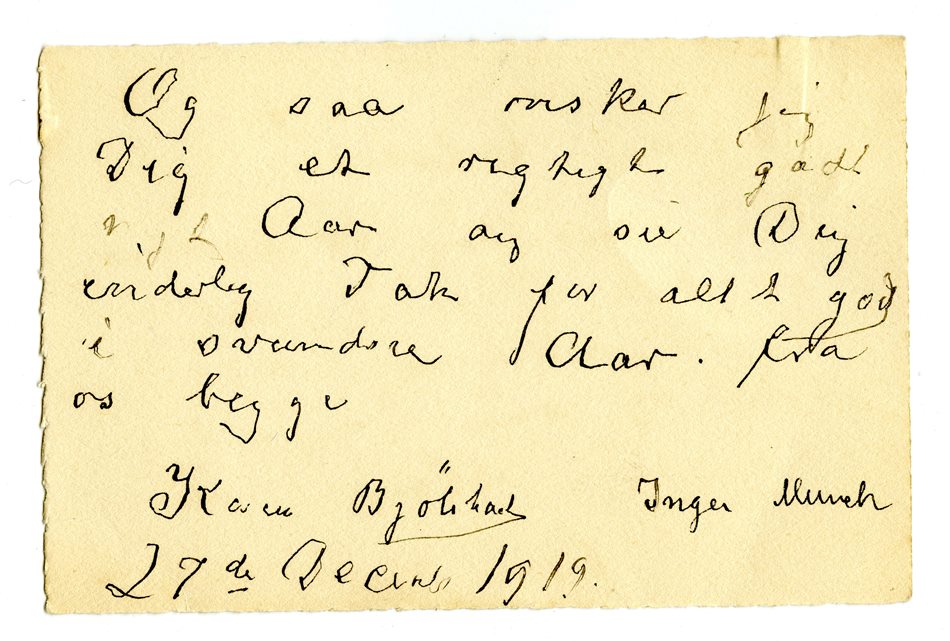 Og saa ønsker jeg
Dig et rigtigt godt
nyt Aar og sie Dig
inderlig Tak for allt godt
i svundne Aar. fra
os begge
Karen Bjölstad Inger Munch
27de Decemb 1919.